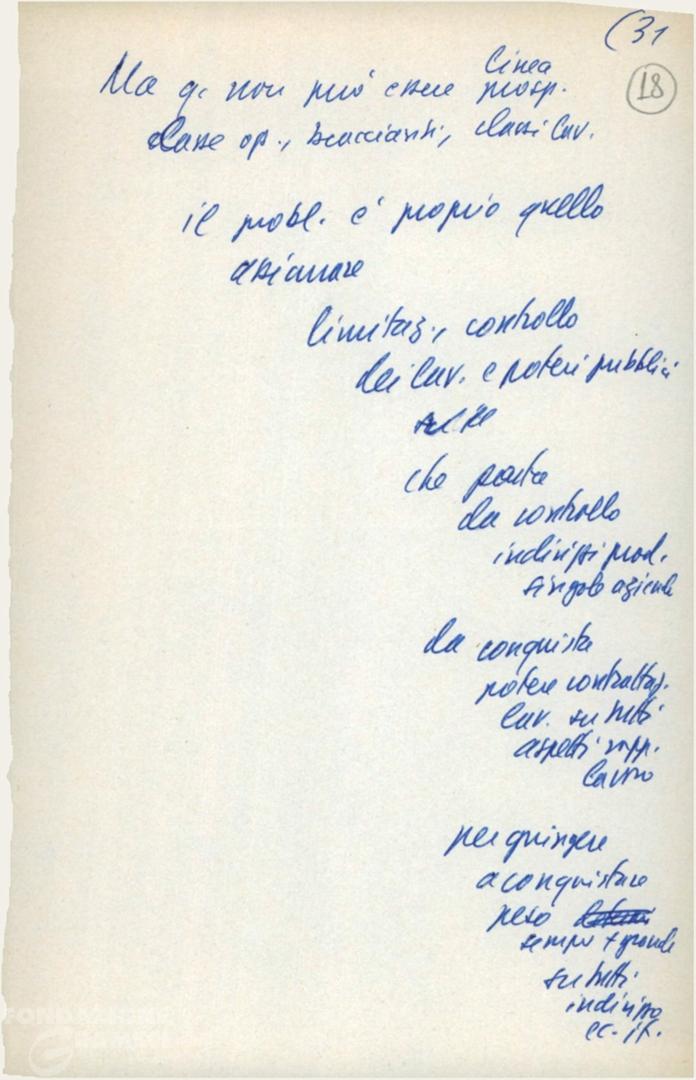 (31
18
linea
Ma q. non può essere prosp.
classe op., braccianti, classi lav.
il probl. è proprio quello
assicurare
limitaz., controllo
dei lav. e poteri pubblici
che parta
da controllo
indirizzi prod.
singole aziende
da conquista
potere contrattaz.
lav. su tutti
aspetti rapp.
lavoro
per giungere
a conquistare
peso
sempre + grande
su tutti
indirizzo
ec. it.
FONDAZIONE
GRAMSCI